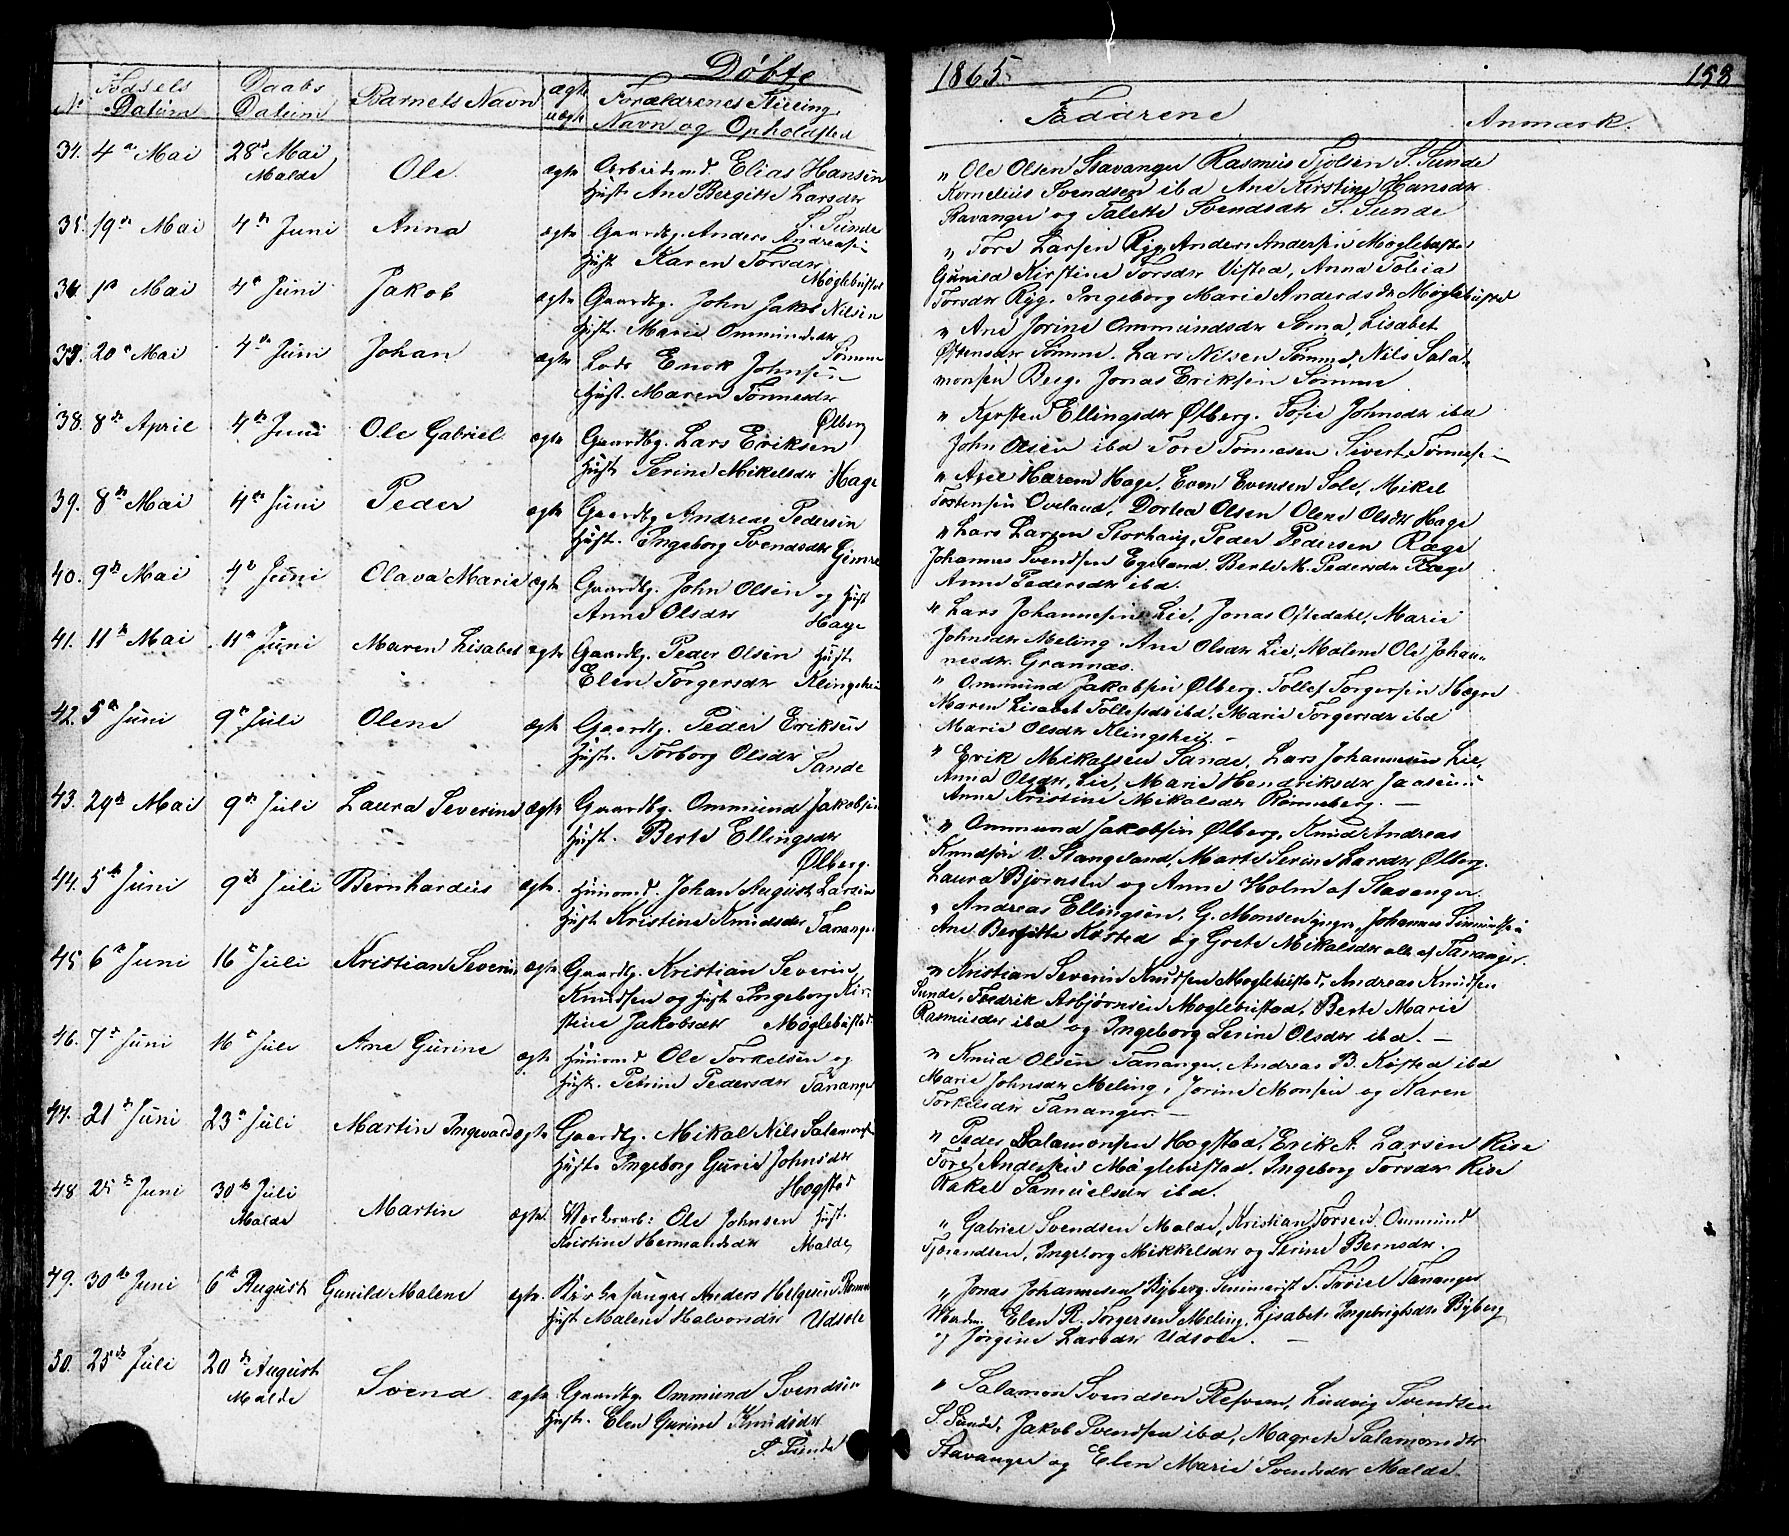 Døbte
1865.
158
No Fødsels Datum
Daabs Datum
Barnets Navn
ægte uægte
Forældrenes Stilling Navn og Opholdsted
Faddrene
Anmærk.
34. 4de Mai 28de Mai Malde Ole ægte
Arbeidsmd. Elias Hansen
Hust. Ane Bergitte Larsdtr
S. Sunde
" Ole Olsen Stavanger Rasmus S. Sunde
Kornelius Svendsen ibd Ane Kirstine Hansdtr
Stavanger og Svendsdtr S. Sunde
35. 19de Mai 4de Juni Anna ægte
Gaardbg. Anders Andreasen
Hust. Karen Torsdtr
Møglebustad
" Tore Larsen Ryg Anders Andersen Møglebustad
Gunild Kirstine Torsdtr Visted, Anna
Torsdtr Ryg. Ingeborg Marie Andersdtr Møglebustad
36. 1de Mai 4de Juni Jakob ægte
Gaardbg. John Jakob Nilsen
Hust. Maren Ommundsdtr
Sømme
" Ane Jorine Ommundsdtr Soma, Lisabet
Sømme. Lars Nilsen Sømme, Nils Sala-
monsen Berg. Jonas Eriksen Sømme
37. 20de Mai 4de Juni Johan ægte
Lods Enok Johnsen
Hust. Maren Tønnesdtr
Ølberg
" Kirsten Ellingsdtr Ølberg. Sofie Johnsdtr ibd
John Olsen ibd Tore Tønnesen Sivert Tønnesen
38. 8de April 4de Juni Ole Gabriel ægte
Gaardbg. Lars Eriksen
Hust. Serine Mikelsdtr Hage
" Axel Harem Hage, Even Evensen Sole, Mikel
Torstensen Oveland, Dortea Olsen Olene Olsdtr Hage
39. 8de Mai 4de Juni Peder ægte
Gaardbg Andreas Pedersen
Hust. Ingeborg Svendsdtr Gimre
" Lars Larsen Storhaug, Peder Pedersen Ræge
Johannes Svendsen Egeland, Berte M. Pedersdtr Ræge
Anne Pedersdtr ibd.
40. 9de Mai 4de Juni Olava Marie ægte
Gaardbg. John Olsen og Hust
Anne Olsdtr Hage
" Lars Johannesen Lie, Jonas Oftedahl, Marie
Johnsdtr Meling. Ane Olsdtr Lie, Malene Ole Johan-
nesdtr. Grannæs.
41. 11de Mai 11de Juni Maren Lisabet ægte
Gaardbg. Peder Olsen Hust.
Elen Torgersdtr Klingsheim
" Ommund Jakobsen Ølberg. Tollef Torgersen
Maren Lisabet Tollefsdtr ibd, Marie Torgersdtr ibd
Marie Olsdtr Klingsheim. –
42. 5de Juni 9de Juli Olene ægte
Gaardbg. Peder Eriksen
Hust. Torborg Olsdtr
Sande
" Erik Mikalsen Sande, Lars Johannesen Lie,
Anna Olsdtr, Lie, Marie Hendriksdtr Jaasund
Anne Kristine Mikalsdtr Rønneberg. –
43. 29de Mai 9de Juli Laura Severine ægte
Gaardbg. Ommund Jakobsen
Hust. Berte Ellingsdtr
Ølberg.
" Ommund Jakobsen Ølberg, Knud Andreas
Knudsen V. Stangeland, Marte Serine Larsdtr Ølberg.
Laura Bjørnsen og Anne Holm af Stavanger
44. 5de Juni 9de Juli Bernhardus ægte
Huusmd. Johan August Larsen
Hust. Kristine Knudsdtr Tananger
" Andreas Ellingsen, G. Monsen yngre, Johannes Simonsen
Ane Bergitte Køsted og Grete Mikalsdtr alle af Tananger.
45. 6de Juni 16de Juli Kristian Severin ægte
Gaardbg. Kristian Severin
Knudsen og Hust Ingeborg Kir-
stine Jakobsdtr Møglebustad
" Kristian Severin Knudsen Møglebustad, Andreas Knudsen
Sunde, Fredrik Asbjørnsen Møglebustad, Berte Marie
Rasmusdtr ibd og Ingeborg Serine Olsdtr ibd. –
46. 7de Juni 16de Juli Ane Gurine ægte
Huusmd Ole Torkelsen og
Hust. Petrine Pedersdtr Tananger
" Knud Olsen Tananger, Andreas B. Køsted ibd
Marie Johnsdtr Meling, Jorine Monsen og Karen
Torkelsdtr Tananger. –
47. 21de Juni 23de Juli Martin Ingvald ægte
Gaardbg. Mikal Nils Salamonsen
Hust. Ingeborg Gurie Johnsdtr
Hogstad
" Peder Salamonsen Hogstad, Erik A. Larsen Risa
Tore Andersen Møglebustad. Ingeborg Torsdtr Risa
Rakel Samuelsdtr ibd.
48. 25de Juni 30de Juli Malde Martin ægte.
Ole Johnsen Hust.
Kristine Hermandsdtr Malde,
" Gabriel Svendsen Malde, Kristian Torsen. Ommund
Tjørandsen, Ingeborg Mikkelsdtr og Serine Berns­dtr.
49. 30de Juni 6te August Gunild Malene ægte.
Kirkesanger Anders Helgesen
Hust Malene Halvorsdtr Udsole
" Jonas Johannesen Byberg. Seminarist Tananger
Madm. Elen R. Torgersen Meling, Lisabet Ingebrigtsdtr Byberg
og Jørgine Larsdtr Udsole. –
50. 25de Juli 20de August Malde Svend ægte
Gaardbg Ommund Svendsen
Hust. Elen Gurine Knudsdtr
S. Sunde
" Salamon Svendsen Refsem, Ludvig Svendsen
S. Sunde, Jakob Svendsen ibd, Magrete Salamonsdtr
Stavanger og Elen Marie Svendsdtr Malde.